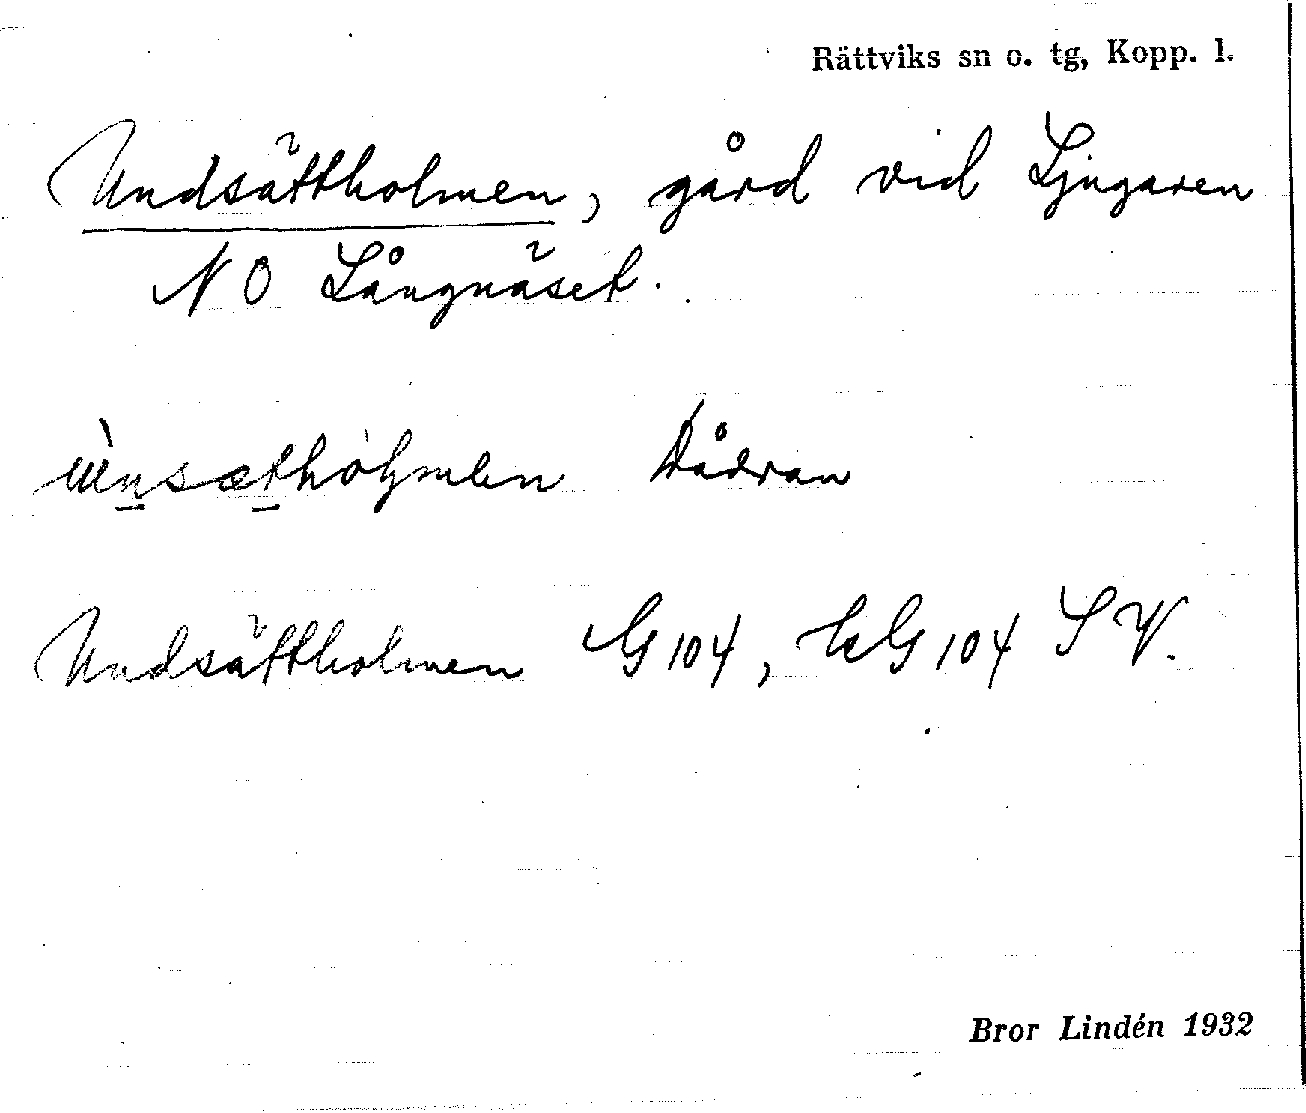 Rättviks sn o. tg, Kopp. l.
Undsättholmen, gård vid Ljugaren
NO Långnäset.
Dådran
Undsättholmen G 104, HG 104 SV.
Bror Lindén 1932